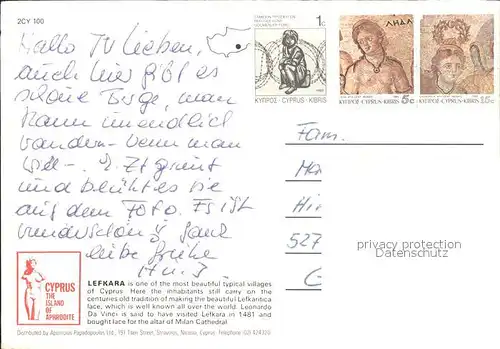 2CY 100
Hallo TV Lieben,
auch hier gibt es
schöne Berge, man
kann unendlich
wandern - wenn man
will -. Z. Zt grünt
und blüht es wie
auf dem Foto. Es ist
wunderschön! Ganz
liebe Grüße
H u. J
1c
ΚΥΠΡΟΣ · CYPRUS · KIBRIS
ΛΗΔΑ
ΚΥΠΡΟΣ-CYPRUS-KIBRIS 5c
ΚΥΠΡΟΣ-CYPRUS-KIBRIS 15c
Fam.
Ma
Hi
527
G
privacy protection
Datenschutz
CYPRUS
THE
ISLAND
OF
APHRODITE
LEFKARA is one of the most beautiful typical villages
of Cyprus. Here the inhabitants still carry on the
centuries old tradition of making the beautiful Lefkaritica
lace, which is well known all over the world. Leonardo
Da Vinci is said to have visited Lefkara in 1481 and
bought lace for the altar of Milan Cathedral.
Distributed by Aposrous Papadopoulos Ltd., 191 Tseri Street, Strovolos, Nicosia, Cyprus. Telephone (02) 424350